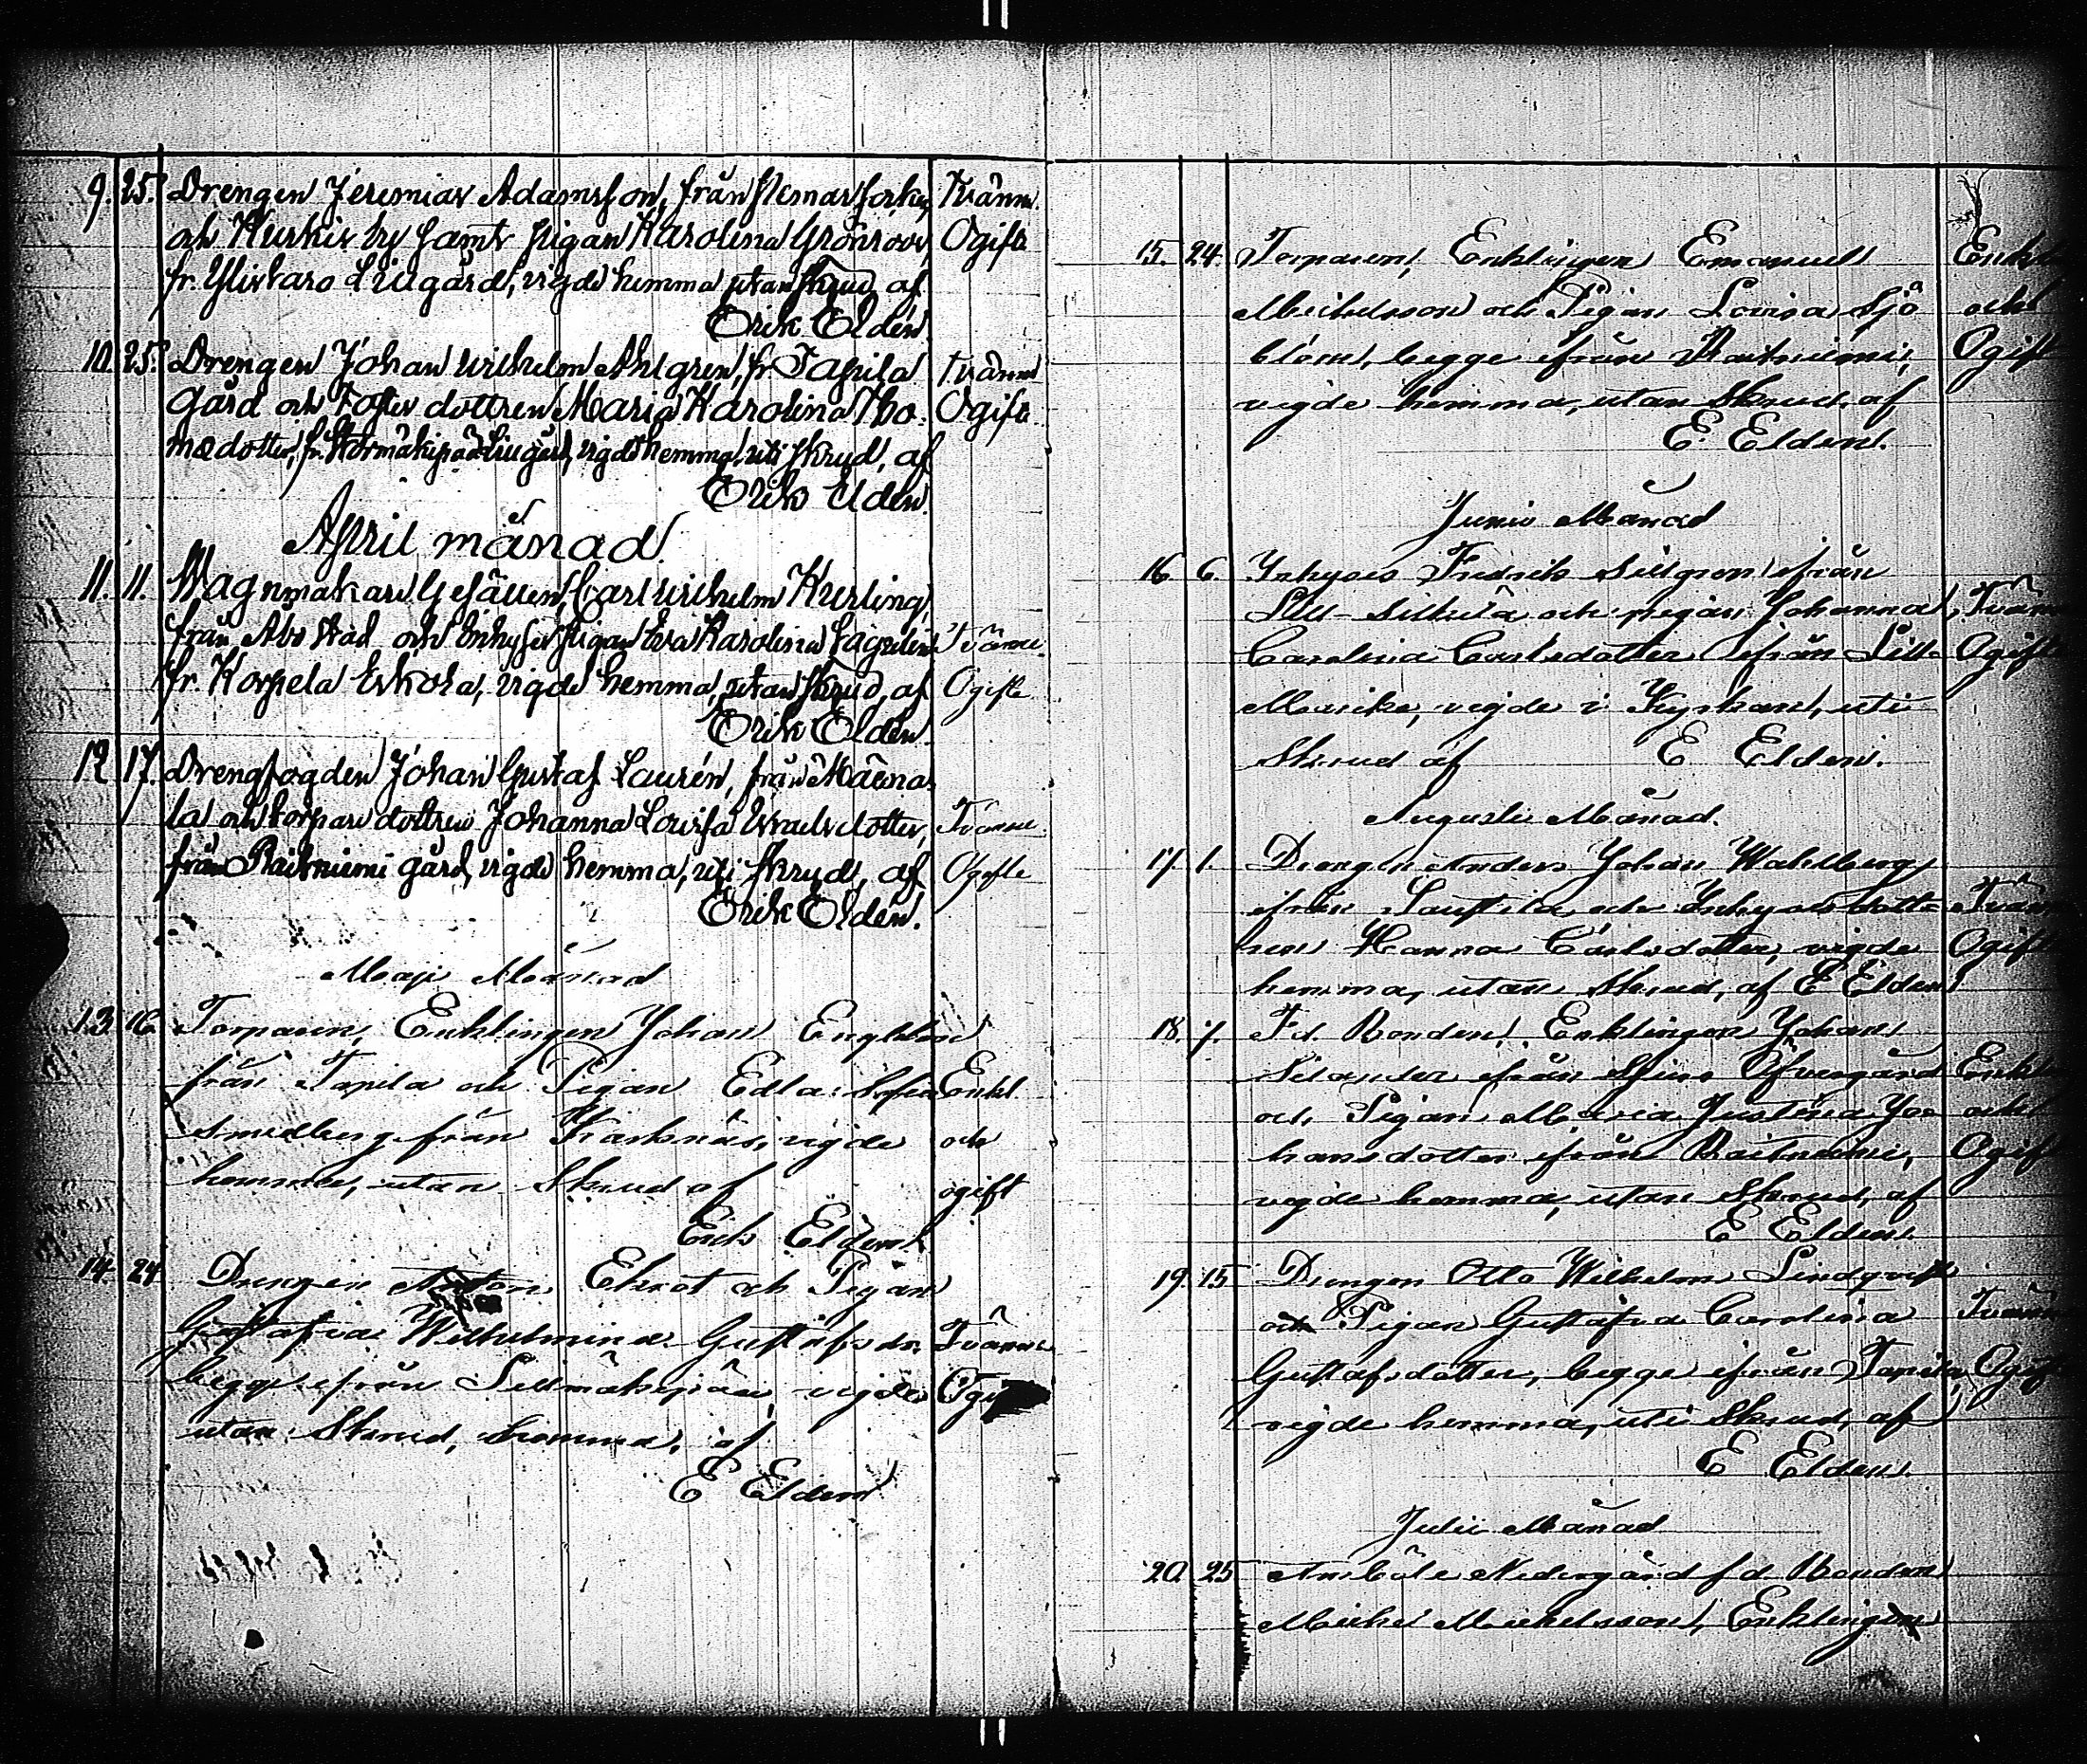 9. 25. Drengen Jeremias Adamsson, från
och Kurkis by samt pigan Karolina Grönroos, Tvänne Ogifte
fr. Ylistaro Liugård, vigde hemma utan skrud, af
Erik Eldén.
10. 25. Drengen Johan Wilhelm Ahlgren, fr Tapila Tvänne
Gård och dottren Maria Karolina Tho- Ogifte
madotter, fr. Liugård, vigde hemma, uti skrud, af
Erik Eldén.
April månad
11. 11. Wagnmakare Gesällen, Carl Wilhelm Kurling,
från Åbo stad och Inhyses pigan Eva Karolina Tvänne
fr. Korpela Eskola, vigde hemma, utan skrud, af Ogifte
Erik Eldén.
12. 17. Drengfogden Johan Gustaf Laurén, från
la och torpare dottren Johanna Lovisa Israelsdotter, Tvänne
från Raitniemi gård, vigde hemma, uti skrud, af Ogifte
Erik Eldén.
Maji Månad
13. 16. Torparen, Enklingen Johan Englund
från Tapila och Pigan Edla Sofia Enkl.
Smedberg från Karsnäs, vigde och
hemma, utan Skrud af ogift
Erik Eldén.
14. 24 Drengen Anton Ekrot och Pigan
Gustafva Wilhelmina Gustafsdr. Tvänne
begge ifrån vigde
utan Skrud, hemma, af
E Elden
15. 24. Torparen, Enklingen Emanuel
Michelsson och Pigan Lovisa Sjö och
blom, begge ifrån Raitniemi, Ogift
vigde hemma, utan Skrud, af
E. Elden.
Junii Månad
16. 6. Inhyses Fredrik Sillgren ifrån
Lill-Silkilä och pigan Johanna
Carolina Carlsdotter ifrån Lill- Ogifte
vigde i Kyrkan, uti
Skrud af E Elden.
Augusti Månad.
17. 1. Drengen Anders Johan Wahlberg
ifrån och Inhyses dott-
ren Hanna Carlsdotter, vigde Ogift
hemma, utan Skrud, af E Elden
18. 7. F.d. Bonden, Enklingen Johan
Silander ifrån Öfvergård
och Pigan Maria Justina Jo- och
hansdotter ifrån Raitniemi, Ogift
vigde hemma, utan Skrud, af
E Elden.
19. 15 Drengen Otto Wilhelm Lindqvist
och Pigan Gustafva Carolina
Gustafsdotter, begge ifrån Tapila,
vigde hemma, uti Skrud, af
E Elden.
Julii Månad
20. 25 Nedergård f.d. Bonden
Michel Michelsson, Enklingen